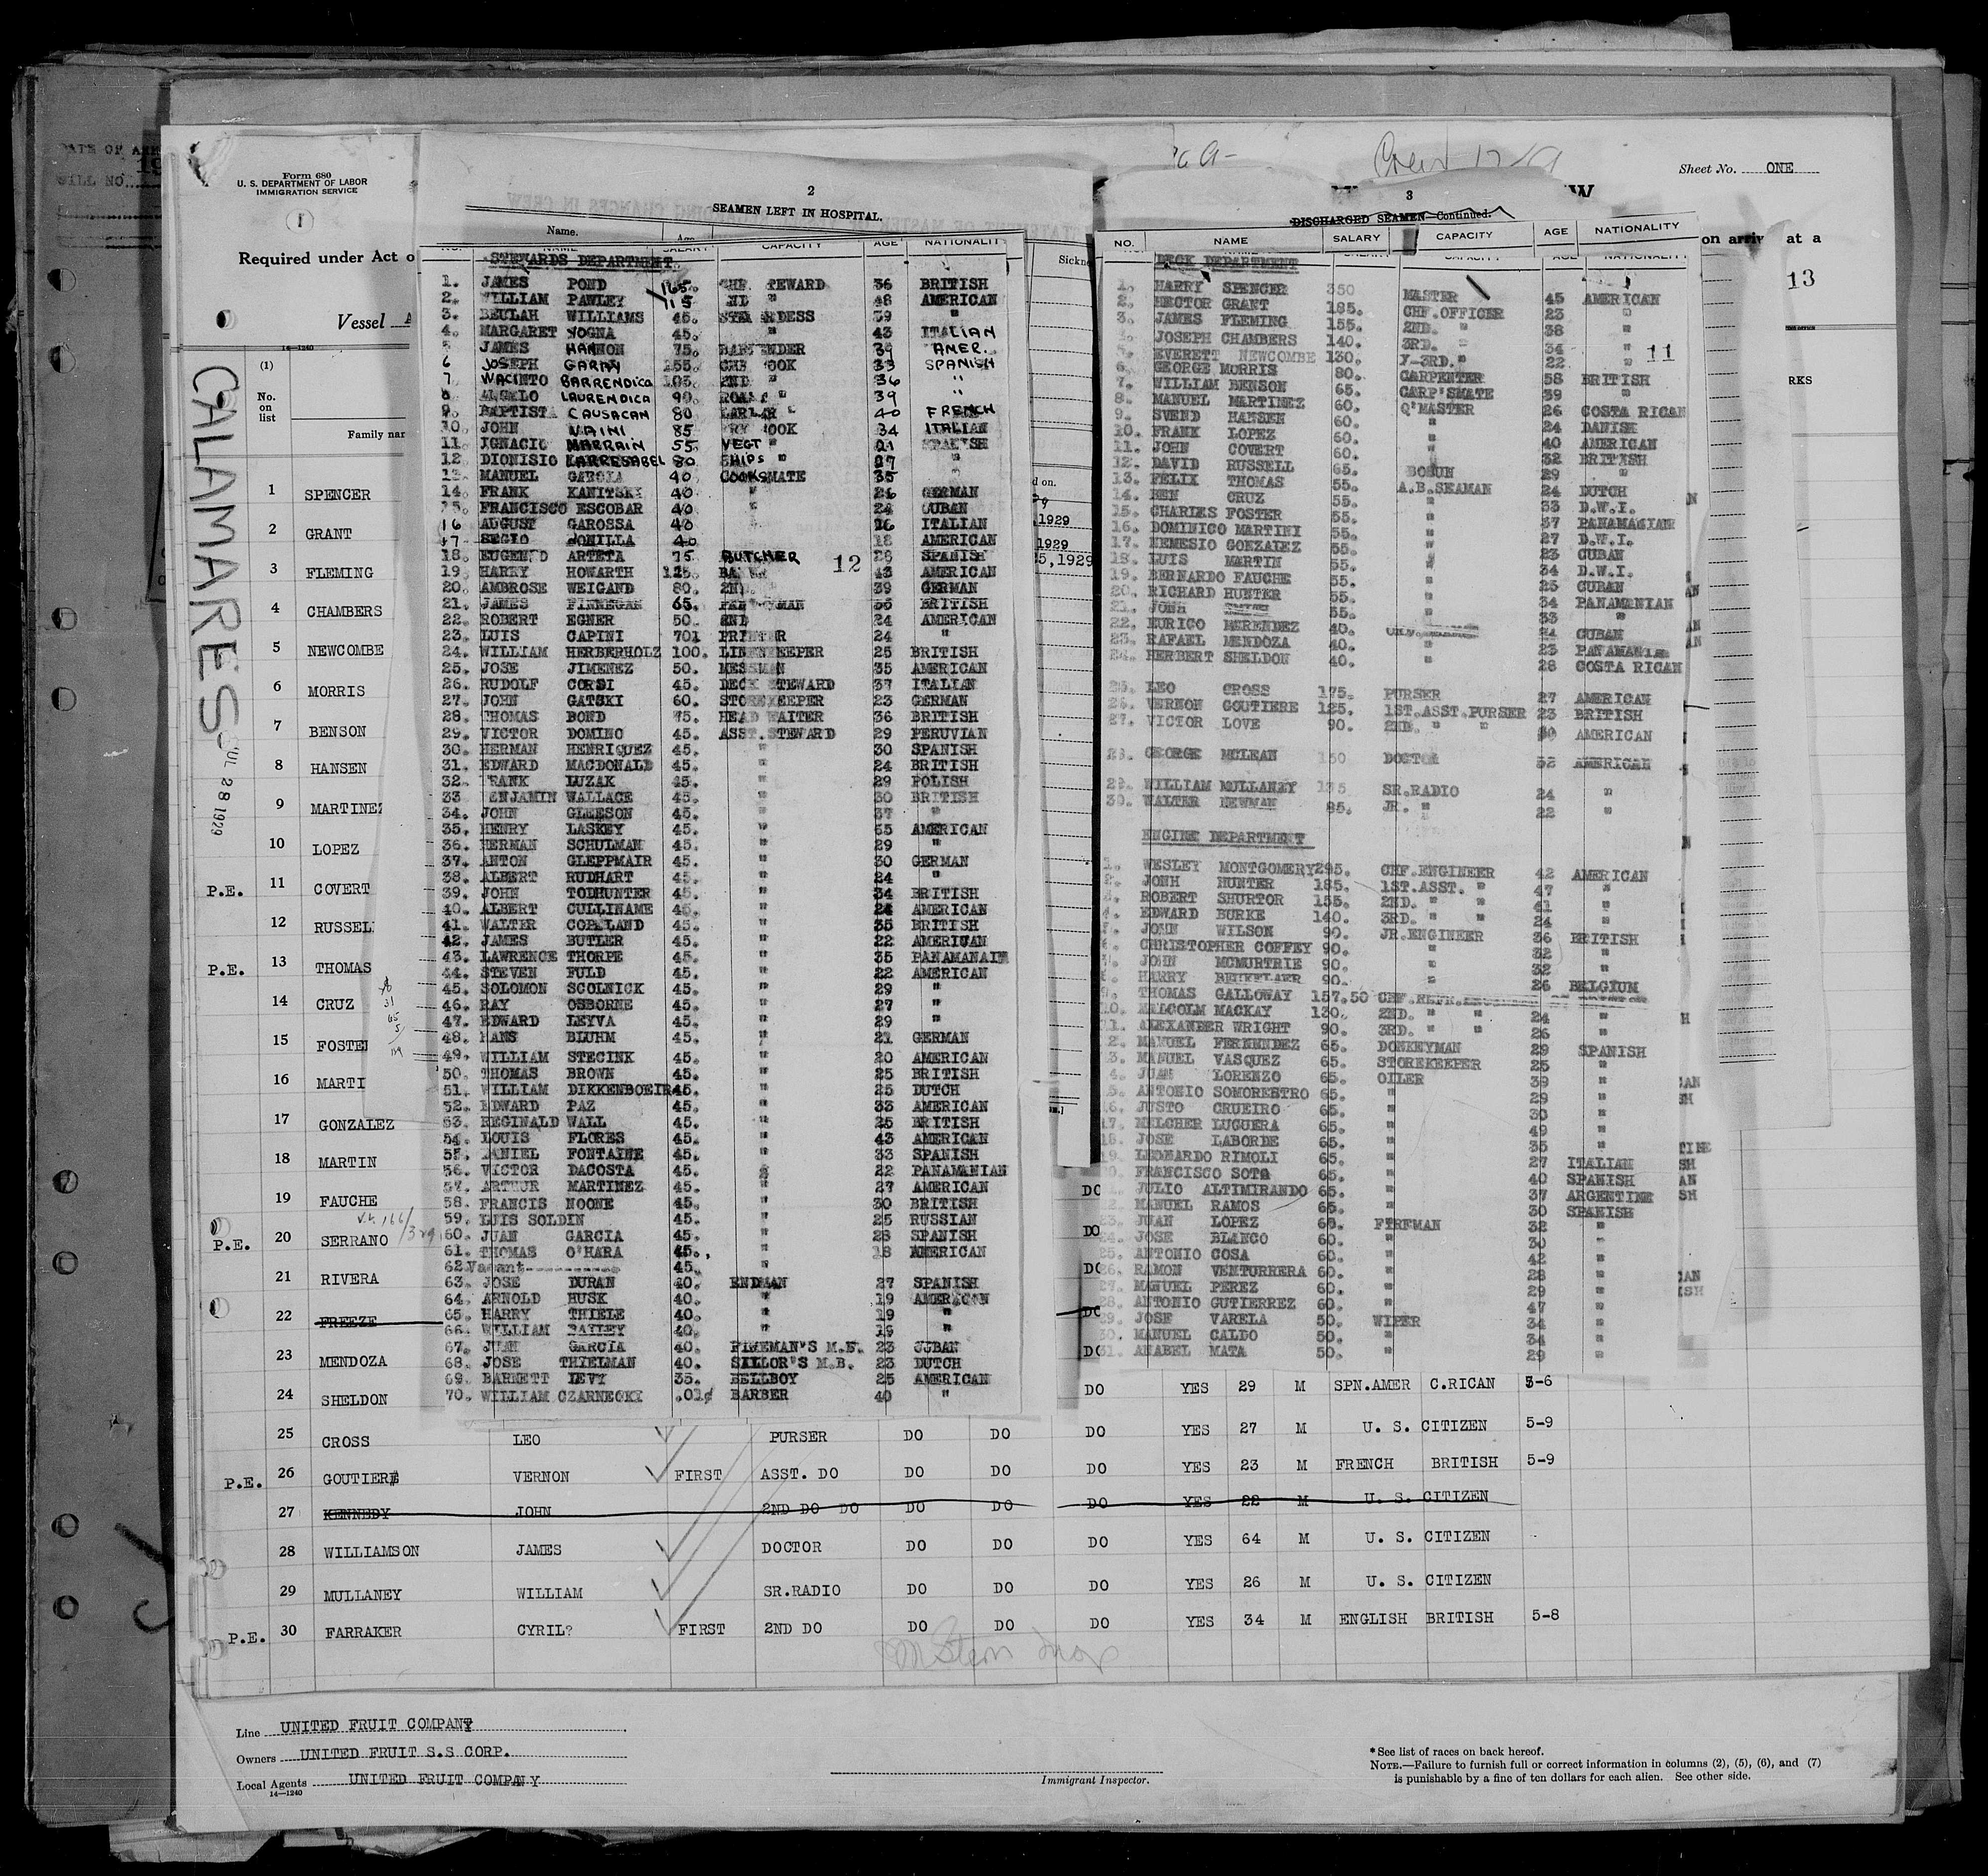 DATE OF ARR
BILL NO.
Form 680
U. S. DEPARTMENT OF LABOR
IMMIGRATION SERVICE
1
Required under Act o
Vessel
14—1240
(1)
No. on list
Family nar
CALAMARES
JUL 28 1929
Sheet No. ONE
on arriv at a
13
RKS
1 SPENCER
2 GRANT
3 FLEMING
4 CHAMBERS
5 NEWCOMBE
6 MORRIS
7 BENSON
8 HANSEN
9 MARTINEZ
10 LOPEZ
P.E. 11 COVERT
12 RUSSEL
P.E. 13 THOMAS
14 CRUZ
15 FOSTE
16 MARTI
17 GONZALEZ
18 MARTIN
19 FAUCHE
P.E. 20 SERRANO
21 RIVERA
22 FREEZE
23 MENDOZA
24 SHELDON DO YES 29 M SPN.AMER C.RICAN 5-6
25 CROSS LEO PURSER DO DO DO YES 27 M U. S. CITIZEN 5-9
P.E. 26 GOUTIERE VERNON FIRST ASST. DO DO DO DO YES 23 M FRENCH BRITISH 5-9
27 KENNEDY JOHN 2ND DO DO DO DO DO YES 22 M U. S. CITIZEN
28 WILLIAMSON JAMES DOCTOR DO DO DO YES 64 M U. S. CITIZEN
29 MULLANEY WILLIAM SR.RADIO DO DO DO YES 26 M U. S. CITIZEN
P.E. 30 FARRAKER CYRIL? FIRST 2ND DO DO DO DO YES 34 M ENGLISH BRITISH 5-8
2
SEAMEN LEFT IN HOSPITAL.
Name.
NAME SALARY CAPACITY AGE NATIONALIT
STEWARDS DEPARTMENT
1. JAMES POND 165. CHF. STEWARD 36 BRITISH
2. WILLIAM PAWLEY 115 2ND " 48 AMERICAN
3. BEULAH WILLIAMS 45. STEWARDESS 39 "
4. MARGARET VOGNA 45. " 43 ITALIAN
5 JAMES HANNON 75. BARTENDER 39 AMER.
6 JOSEPH GARAY 155. CHF COOK 33 SPANISH
7 BARRENDICA 103. 2ND " 36 "
8 LAURENDICA 90. " 39 "
9. BAPTISTA CAUSACAN 80 " 40 FRENCH
10. JOHN VAINI 85 COOK 34 ITALIAN
11. IGNACIO MARRAIN 55. VEGT " 21 SPANISH
12 DIONISIO LARRESABEL 80 SHIPS " 27 "
13. MANUEL GARCIA 40 COOKSMATE 35 "
14. FRANK KANITSKY 40. " 26 GERMAN
15. FRANCISCO ESCOBAR 40. " 24 CUBAN
16 AUGUST GAROSSA 40 " 26 ITALIAN
17 SEGIO JONILLA 40 " 18 AMERICAN
18. ARTETA 75. BUTCHER 28 SPANISH
12
19. HARRY HOWARTH 125. BAKER 43 AMERICAN
20. AMBROSE WEIGAND 80. 2ND. 39 GERMAN
21. JAMES FINNEGAN 65. PANTRYMAN 35 BRITISH
22. ROBERT EGNER 50. 2ND 24 AMERICAN
23. LUIS CAPINI 70. PRINTER 24 "
24. WILLIAM HERBERHOLZ 100. LINENKEEPER 25 BRITISH
25. JOSE JIMENEZ 50. MESSMAN 35 AMERICAN
26. RUDOLF CORSI 45. DECK STEWARD 37 ITALIAN
27. JOHN GATSKI 60. STOREKEEPER 23 GERMAN
28. THOMAS BOND 75. HEAD WAITER 36 BRITISH
29. VICTOR DOMINO 45. ASST. STEWARD 29 PERUVIAN
30. HERMAN HENRIQUEZ 45. " 30 SPANISH
31. EDWARD MACDONALD 45. " 24 BRITISH
32. FRANK LUZAK 45. " 29 POLISH
33 BENJAMIN WALLACE 45. " 30 BRITISH
34. JOHN GLEESON 45. " 37 "
35. HENRY LASKEY 45. " 55 AMERICAN
36. HERMAN SCHULMAN 45. " 29 "
37. ANTON GLEPPMAIR 45. " 30 GERMAN
38. ALBERT RUDHART 45. " 24 "
39. JOHN TODHUNTER 45. " 34 BRITISH
40. ALBERT CULLINAME 45. " 24 AMERICAN
41. WALTER COPELAND 45. " 35 BRITISH
42. JAMES BUTLER 45. " 22 AMERICAN
43. LAWRENCE THORPE 45. " 35 PANAMANAIN
44. STEVEN FULD 45. " 22 AMERICAN
45. SOLOMON SCOLNICK 45. " 29 "
46. RAY OSBORNE 45. " 27 "
47. EDWARD LEYVA 45. " 29 "
48. HANS BLUHM 45. " 21 GERMAN
49. WILLIAM STECINK 45. " 20 AMERICAN
50. THOMAS BROWN 45. " 25 BRITISH
51. WILLIAM DIKKENBOEIR 45. " 25 DUTCH
52. EDWARD PAZ 45. " 33 AMERICAN
53. REGINALD WALL 45. " 25 BRITISH
54. LOUIS FLORES 45. " 43 AMERICAN
55. DANIEL FONTAINE 45. " 33 SPANISH
56. VICTOR DACOSTA 45. " 22 PANAMANIAN
57. ARTHUR MARTINEZ 45. " 27 AMERICAN
58. FRANCIS NOONE 45. " 30 BRITISH
59. LUIS SOLDIN 45. " 25 RUSSIAN
60. JUAN GARCIA 45. " 28 SPANISH
61. THOMAS O'HARA 45. " 18 AMERICAN
62. Vacant---------- 45.
63. JOSE DURAN 40. ENDMAN 27 SPANISH
64. ARNOLD HUSK 40. " 19 AMERICAN
65. HARRY THIELE 40. " 19 "
66. WILLIAM BAILEY 40. " 19 "
67. JUAN GARCIA 40. FIREMAN'S M.B. 23 CUBAN
68. JOSE THIELMAN 40. SAILOR'S M.B. 23 DUTCH
69. BARNETT LEVY 35. BELLBOY 25 AMERICAN
70. WILLIAM CZARNECKI .01¢ BARBER 40 "
3
DISCHARGED SEAMEN—Continued.
NO. NAME SALARY CAPACITY AGE NATIONALITY
DECK DEPARTMENT
1. HARRY SPENCER 350 MASTER 45 AMERICAN
2. HECTOR GRANT 185. CHF.OFFICER 23 "
3. JAMES FLEMING 155. 2ND. " 38 "
4. JOSEPH CHAMBERS 140. 3RD. " 34 "
11
5. EVERETT NEWCOMBE 130. Y-3RD. " 22 "
6. GEORGE MORRIS 80. CARPENTER 58 BRITISH
7. WILLIAM BENSON 65. CARP'SMATE 39 "
8. MANUEL MARTINEZ 60. Q'MASTER 26 COSTA RICAN
9. SVEND HANSEN 60. " 24 DANISH
10. FRANK LOPEZ 60. " 40 AMERICAN
11. JOHN COVERT 60. " 32 BRITISH
12. DAVID RUSSELL 65. BOSUN 29 "
13. FELIX THOMAS 55. A.B.SEAMAN 24 DUTCH
14. BEN CRUZ 55. " 33 D.W.I.
15. CHARLES FOSTER 55. " 37 PANAMANIAN
16. DOMINICO MARTINI 55. " 27 D.W.I.
17. NEMESIO GONZALEZ 55. " 23 CUBAN
18. LUIS MARTIN 55. " 34 D.W.I.
19. BERNARDO FAUCHE 55. " 25 CUBAN
20. RICHARD HUNTER 55. " 34 PANAMANIAN
21. JONH 55. " 33 "
22. EURICO MERENDEZ 40. 21 CUBAN
23. RAFAEL MENDOZA 40. " 23 PANAMANIAN
24. HERBERT SHELDON 40. " 28 COSTA RICAN
25. LEO CROSS 175. PURSER 27 AMERICAN
26. VERNON GOUTIERE 125. 1ST.ASST.PURSER 23 BRITISH
27. VICTOR LOVE 90. 2ND. " " 30 AMERICAN
28. GEORGE MCLEAN 150 DOCTOR 52 AMERICAN
29. WILLIAM MULLANEY 135 SR.RADIO 24 "
30. WALTER NEWMAN 85. JR. " 22 "
ENGINE DEPARTMENT
1. WESLEY MONTGOMERY 295. CHF.ENGINEER 42 AMERICAN
2. JONH HUNTER 185. 1ST.ASST. " 47 "
3. ROBERT SHURTOR 155. 2ND. " " 41 "
4. EDWARD BURKE 140. 3RD. " " 24 "
5. JOHN WILSON 90. JR.ENGINEER 36 BRITISH
6. CHRISTOPHER COFFEY 90. " 32 "
7. JOHN MCMURTRIE 90. " 32 "
8. HARRY 90. " 26 BELGIUM
9. THOMAS GALLOWAY 157.50 CHF.REFR.
10. MALCOLM MACKAY 130. 2ND. " " 24 "
11. ALEXANDER WRIGHT 90. 3RD. " " 26 "
12. MANUEL FERNENDEZ 65. DONKEYMAN 29 SPANISH
13. MANUEL VASQUEZ 65. STOREKEEPER 25 "
14. JUAN LORENZO 65. OILER 39 "
15. ANTONIO SOMORESTRO 65. " 29 "
16. JUSTO CRUEIRO 65. " 30 "
17. MELCHER LUGUERA 65. " 49 "
18. JOSE LABORDE 65. " 35 "
19. LEONARDO RIMOLI 65. " 27 ITALIAN
20. FRANCISCO SOTO 65. " 40 SPANISH
21. JULIO ALTIMIRANDO 65. " 37 ARGENTINE
22. MANUEL RAMOS 65. " 30 SPANISH
23. JUAN LOPEZ 65. FIREMAN 32 "
24. JOSE BLANCO 60. " 30 "
25. ANTONIO COSA 60. " 42 "
26. RAMON VENTURRERA 60. " 28 "
27. MANUEL PEREZ 60. " 29 "
28. ANTONIO GUTIERREZ 60. " 47 "
29. JOSE VARELA 50. WIPER 34 "
30. MANUEL CALDO 50. " 34 "
31. ANABEL MATA 50. " 29 "
Line UNITED FRUIT COMPANY
Owners UNITED FRUIT S.S CORP.
Local Agents UNITED FRUIT COMPANY
14—1240
Immigrant Inspector.
*See list of races on back hereof.
NOTE.—Failure to furnish full or correct information in columns (2), (5), (6), and (7)
is punishable by a fine of ten dollars for each alien. See other side.